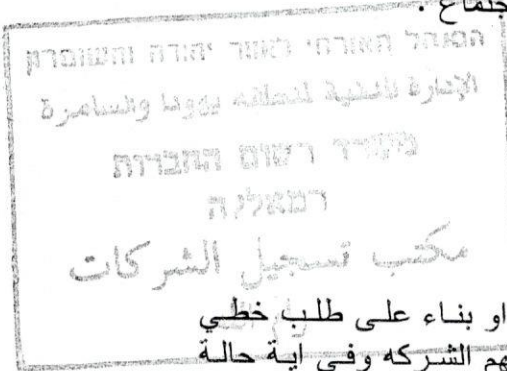 جتماع .
המנהל האזרחי לאזור יהודה והשומרון
الإدارة المدنية لمنطقة يهودا والسامرة
משרד רשום החברות
רמאללה
مكتب تسجيل الشركات
رام الله
او بناء على طلب خطي
هم الشركه وفي اية حالة